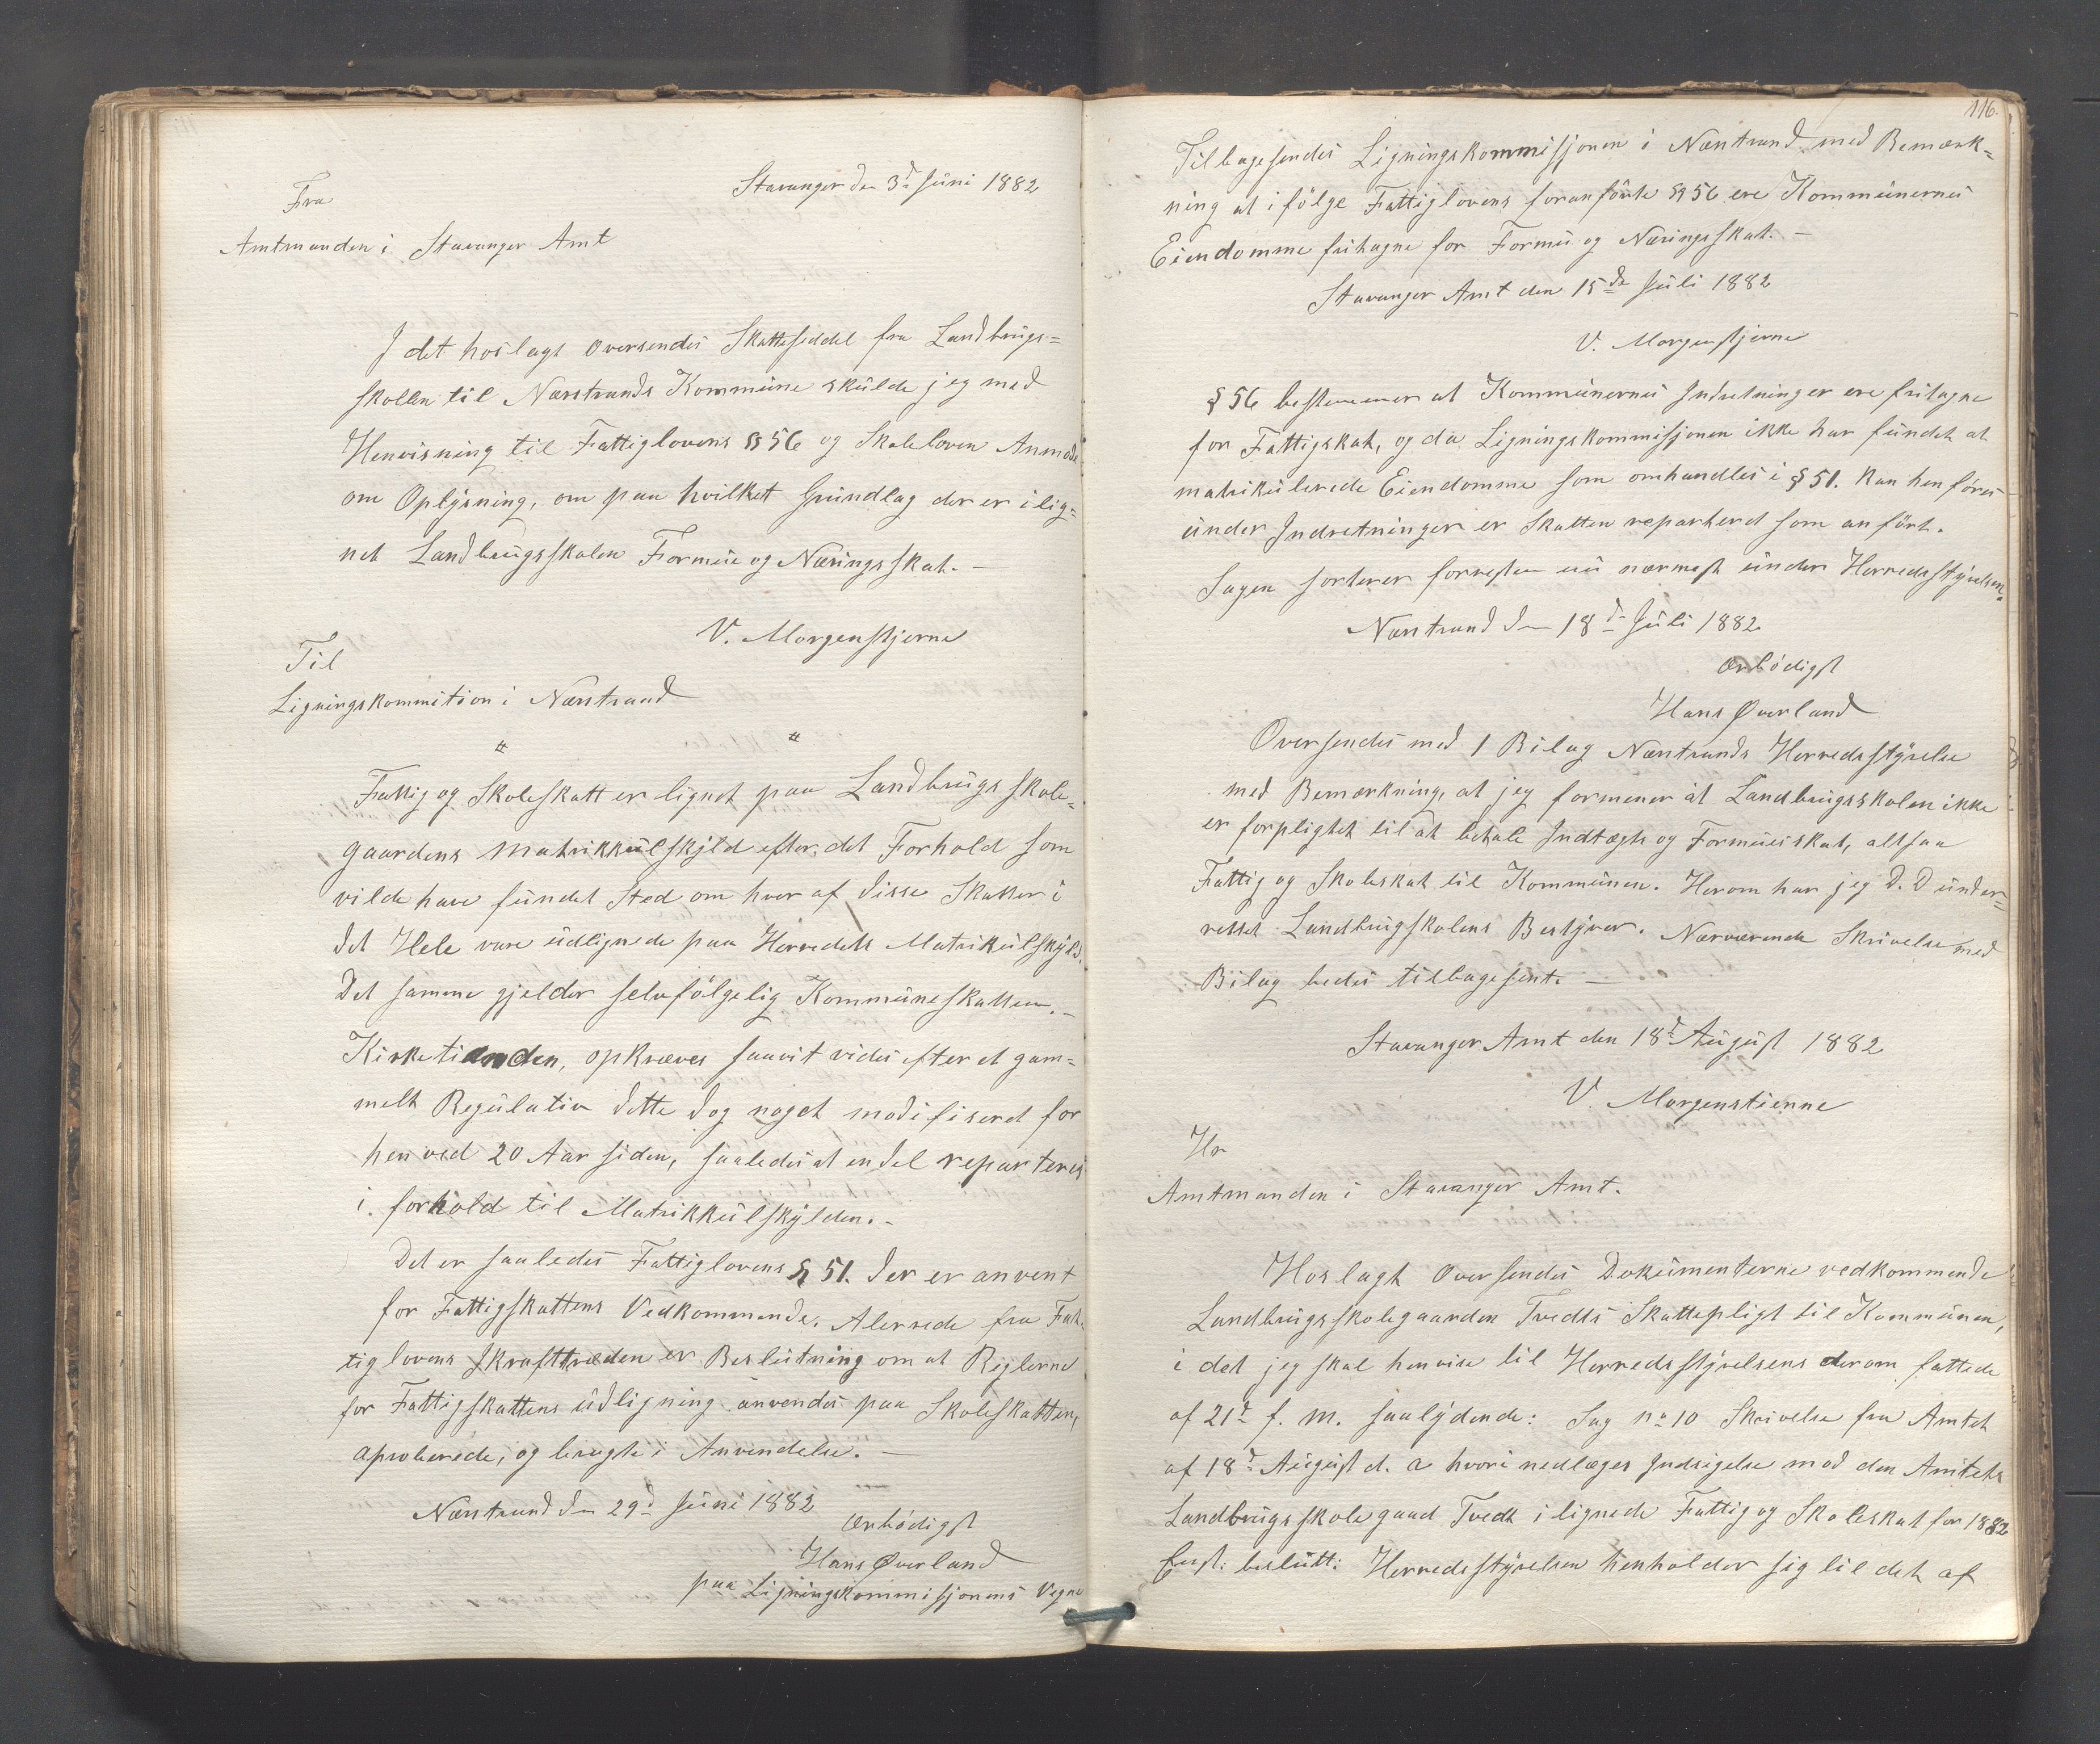 Stavanger den 3d Juni 1882
Fra
Amtmanden i Stavanger Amt
I det hoslagt oversendes Skatteseddel fra Landbrugs=
skollen til Nærstrands Kommune skulde jeg med
Henvisning til Fattiglovens § 56 og Skoleloven Anmode
om Oplysning, om paa hvilket Grundlag der er ilig=
net Landbrugsskolen Formue og Næringsskat. —
V. Morgenstjerne
Til
Ligningskommition i Nærstrand
" "
Fattig og Skoleskatt er lignet paa Landbrugsskole=
gaardens Matrikkulskyld efter det Forhold som
vilde have fundet Sted om hver af disse Skatter i
det Hele vare udlignede paa Herredets Matrikulskyld.
Det samme gjelder selvfölgelig Kommuneskatten. —
Kirketienden, opkræves saavit vides efter et gam=
melt Regulativ dette dog noget modifiseret for
henved 20 Aar siden, saaledes at en del reparteres
i forhold til Matrikkulskylden. -
Det er saaledes Fattiglovens § 51. der er anvent
for Fattigskattens Vedkommende. Alerrede fra Fat-
tiglovens Ikrafttræden er Beslutning om at Reglerne
for Fattigskattens udligning anvendes paa Skoleskatten,
aproberede, og bragte i Anvendelse. —
Nærstrand den 29d Juni 1882
ærbödigst
Hans Øverland
paa Ligningskommisjonens Vegne
116.
Tilbagesendes Ligningskommisjonen i Nærstrand med Bemærk=
ning at ifölge Fattiglovens foranförte § 56 ere Kommunernes
Eiendomme fritagne for Formue og Næringsskat. —
Stavanger Amt den 15de Juli 1882
V. Morgenstjerne
§ 56 bestemmer at Kommunernes Indretninger ere fritagne
for Fattigskat, og da Ligningskommisjonen ikke har fundet at
matrikulerede Eiendomme som omhandles i § 51. kan henföres
under Indretninger er Skatten reparterd som anfört.
Sagen sorterer forresten nu nærmest under Herredsstyrelsen.
Nærstrand den 18d Juli 1882
ærbödigst
Hans Øverland
Oversendes med 1 Bilag Nærstrands Herredsstyrelse
med Bemærkning, at jeg formener at Landbrugsskolen ikke
er forpligtet til at betale Indtægts og Formuesskat, altsaa
Fattig og Skoleskat til Kommunen. Herom har jeg D. D under=
rettet Landbrugskolens Bestyrer. Nærværende Skrivelse med
Bilag bedes tilbagesent. —
Stavanger Amt den 18d August 1882
V. Morgenstienne
Hr
Amtmanden i Stavanger Amt.
Hoslagt Oversendes Dokumenterne vedkommende
Landbrugsskolegaarden Tvedts Skattepligt til Kommunen,
i det jeg skal henvise til Herredsstyrelsens derom fattede
af 21d f. M. saalydende: Sag no 10 Skrivelse fra Amtet
af 18d August d. a hvori nedlæges Indsigelse mod den Amtets
Landbrugsskolegaad Tvedt ilignede Fattig og Skoleskat for 1882
beslutt: Herredsstyrelsen henholder sig til det af